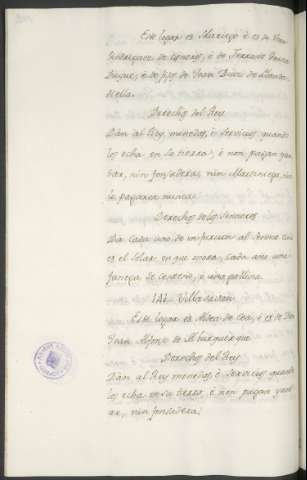 Este logar es Solariego è es de Gon
Rodriguez de Cisneros, è de Ferrando Garcia
Duque, è de fijos de Juan Diaz de
Derechos del Rey
Dan al Rey monedas, è servicios quando
los echa en la tierra, è non pagan yan
tar, nin fonsadera, nin Martiniega, nin
la pagaron nunca.
Derechos de los Señores
Da cada uno de al Señor cu
es el Solar en que mora, cada año una
fanega de centeno, è una gallina.
Villa
Este logar es Aldea de Cea, è es de Don
Juan Alfonso de Alburquerque
Derechos del Rey
Dan al Rey monedas, è servicios quando
los echa en su tierra, è non pagan yant
ar, nin fonsadera,